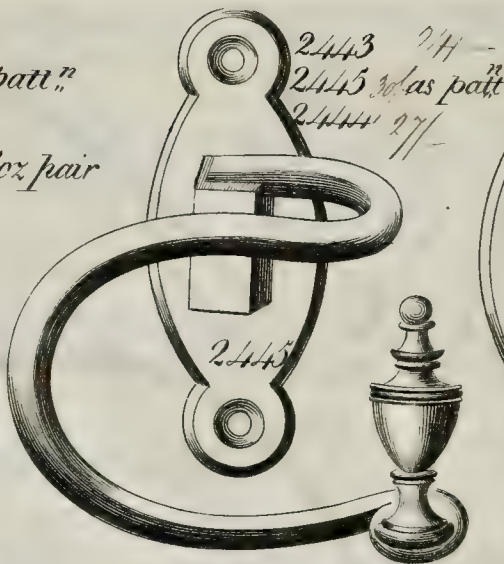 patt.ⁿ
oz pair
2443
2445 30/ as patt.ⁿ
2444 27/-
2445